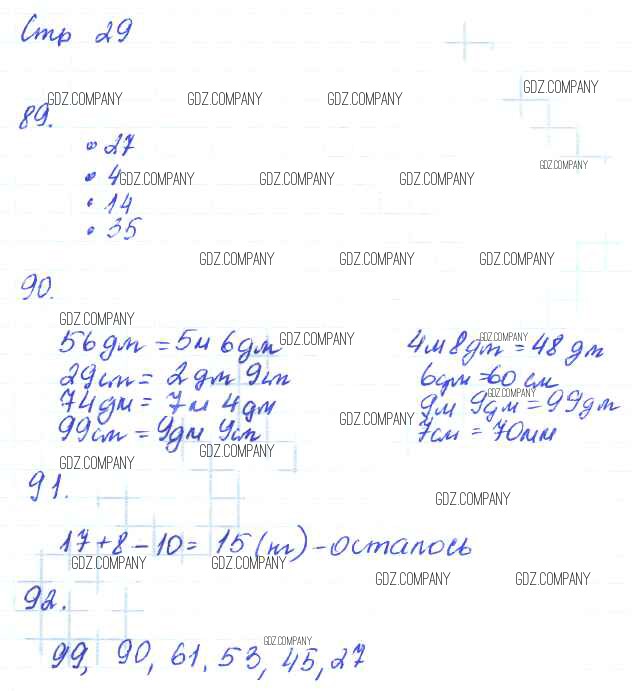 Стр 29
GDZ.COMPANY
GDZ.COMPANY GDZ.COMPANY GDZ.COMPANY
89.
• 27
GDZ.COMPANY
• 4 GDZ.COMPANY GDZ.COMPANY GDZ.COMPANY
• 14
• 35
GDZ.COMPANY GDZ.COMPANY GDZ.COMPANY
90.
GDZ.COMPANY
56 дм = 5м 6 дм GDZ.COMPANY 4м 8 дм = 48 дм GDZ.COMPANY
29 см = 2 дм 9 см 6 дм = 60 см
GDZ.COMPANY
74 дм = 7м 4 дм 9м 9 дм = 99 дм
GDZ.COMPANY
99 см = 9 дм 9 см 7 см = 70 мм
GDZ.COMPANY GDZ.COMPANY
91.
GDZ.COMPANY
17 + 8 - 10 = 15 (кг) - осталось
GDZ.COMPANY GDZ.COMPANY
GDZ.COMPANY GDZ.COMPANY
92.
GDZ.COMPANY
99, 90, 61, 53, 45, 27